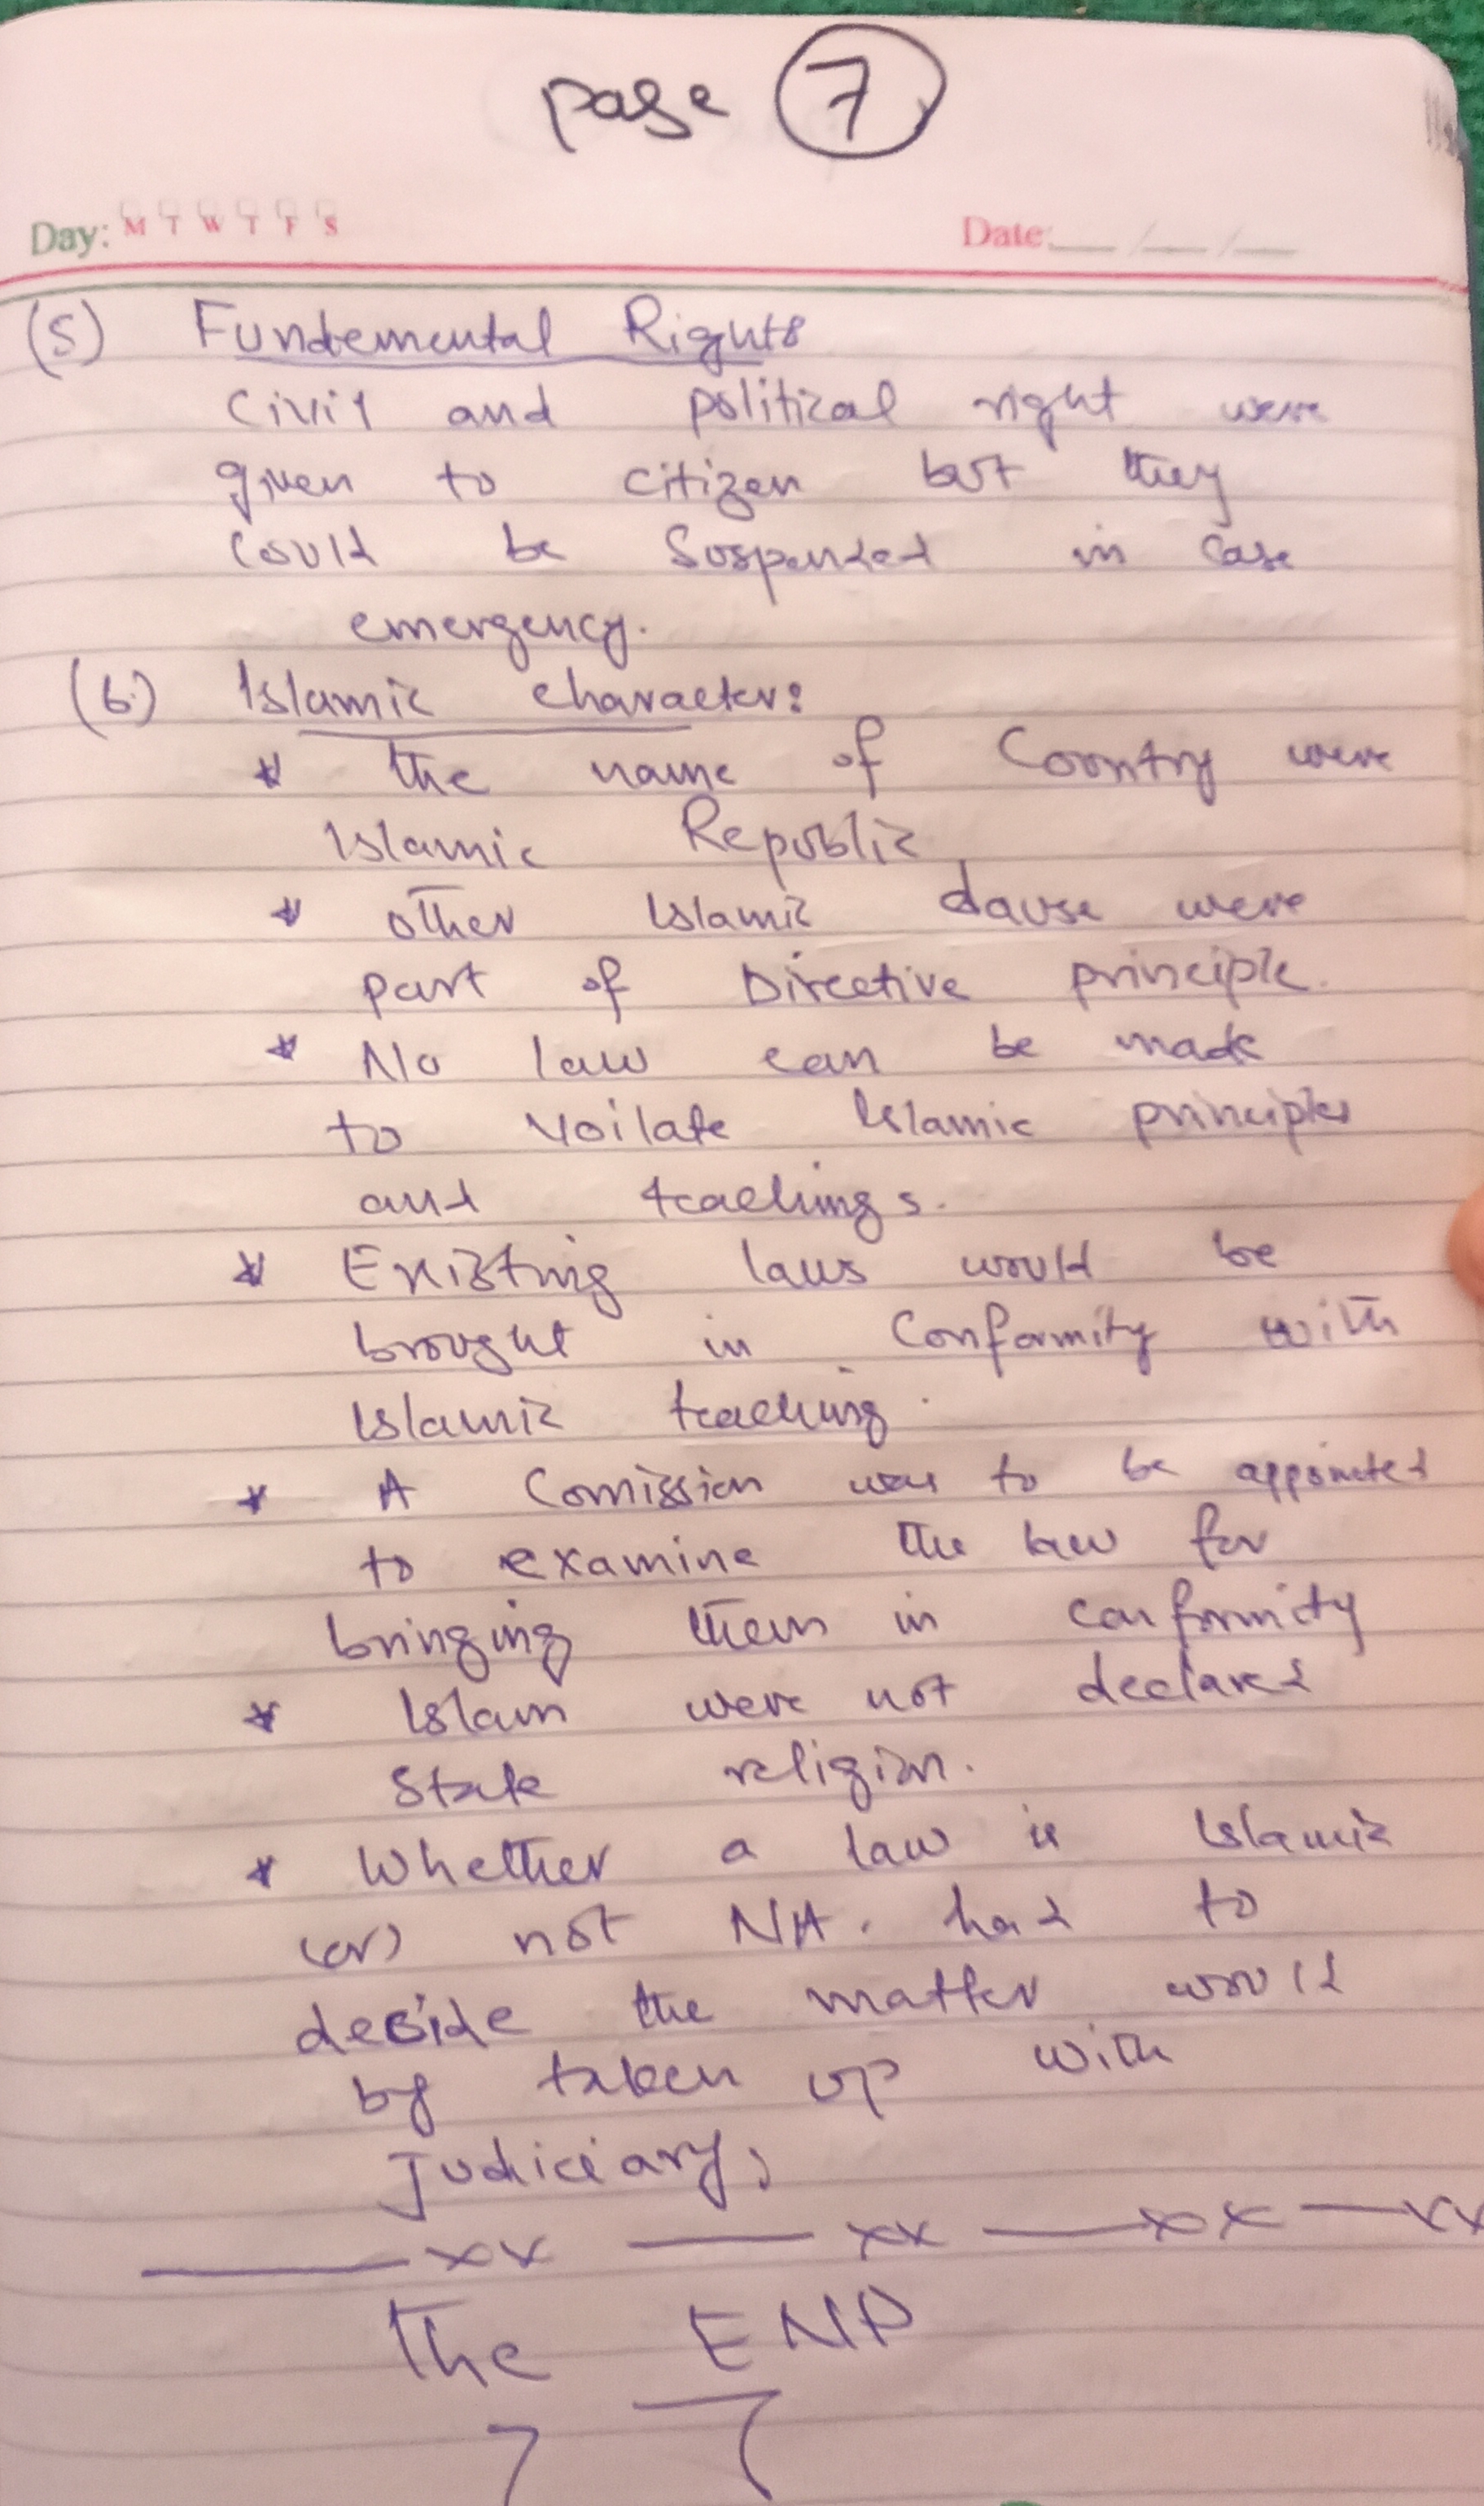 page 7
Day: M T W T F S Date: __/__/__
(5) Fundemental Rights
Civil and political right were
given to citizen but they
could be Suspended in case
emergency.
(6) Islamic character:
* the name of Country were
Islamic Republic
* other Islamic clause were
part of Directive principle.
* No law can be made
to Voilate Islamic principles
and teachings.
* Existing laws would be
brought in Conformity with
Islamic teaching.
* A Comission was to be appointed
to examine the law for
bringing them in conformity
* Islam were not declared
State religion.
* Whether a law is Islamic
(or) not NA. had to
decide the matter would
by taken up with
Judiciary,
—— xx —— xx —— xx —— xx
The END